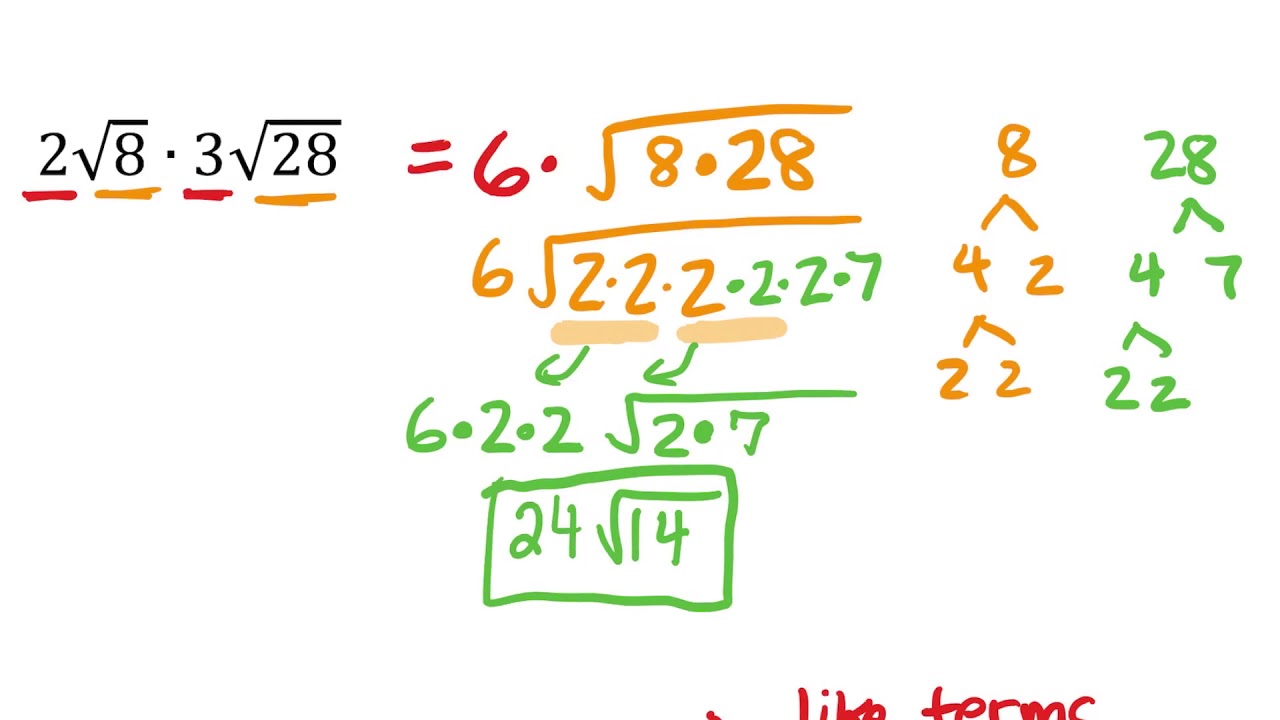 2√8 · 3√28 = 6 · √8·28
6√2·2·2·2·2·7
6·2·2√2·7
24√14
8
4 2
2 2
28
4 7
2 2
like terms